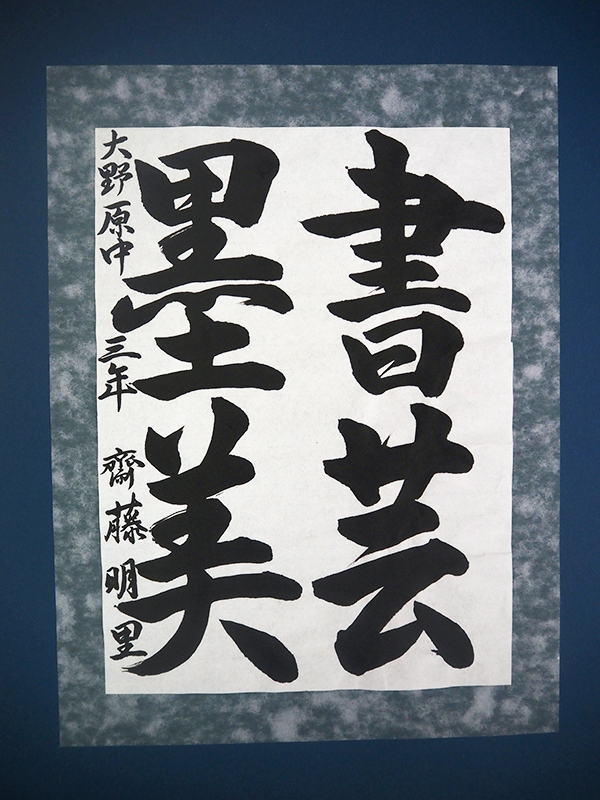 書芸
墨美
大野原中 三年 齋藤明里